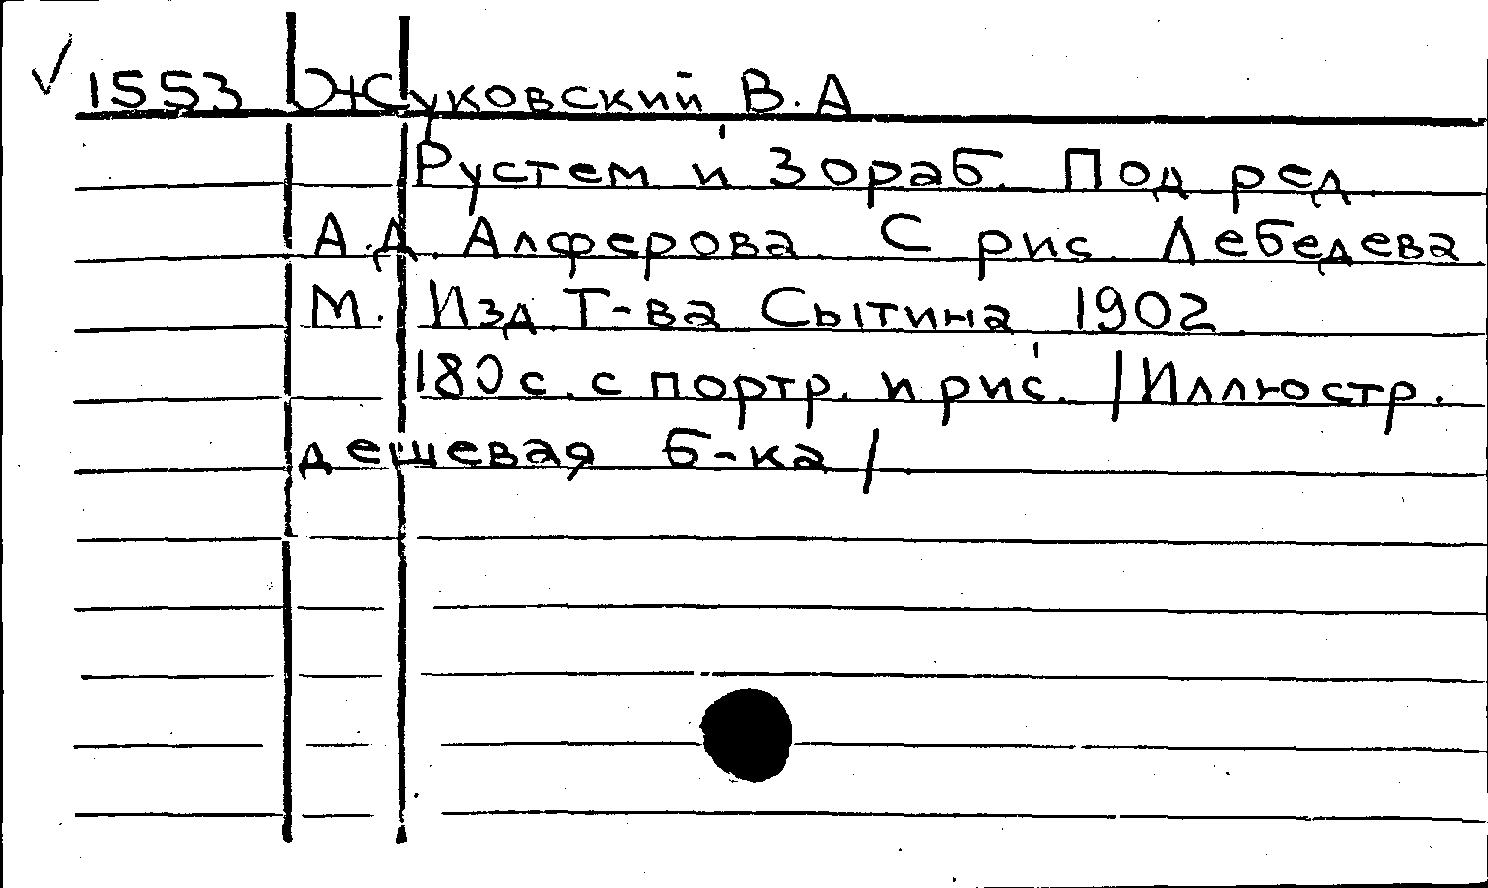 √ 1553 Жуковский В.А
Рустем и Зораб. Под ред
А.Д Алферова С рис Лебедева
М. Изд Т-ва Сытина 1902
180 с. с портр. и рис. /Иллюстр.
дешевая б-ка/